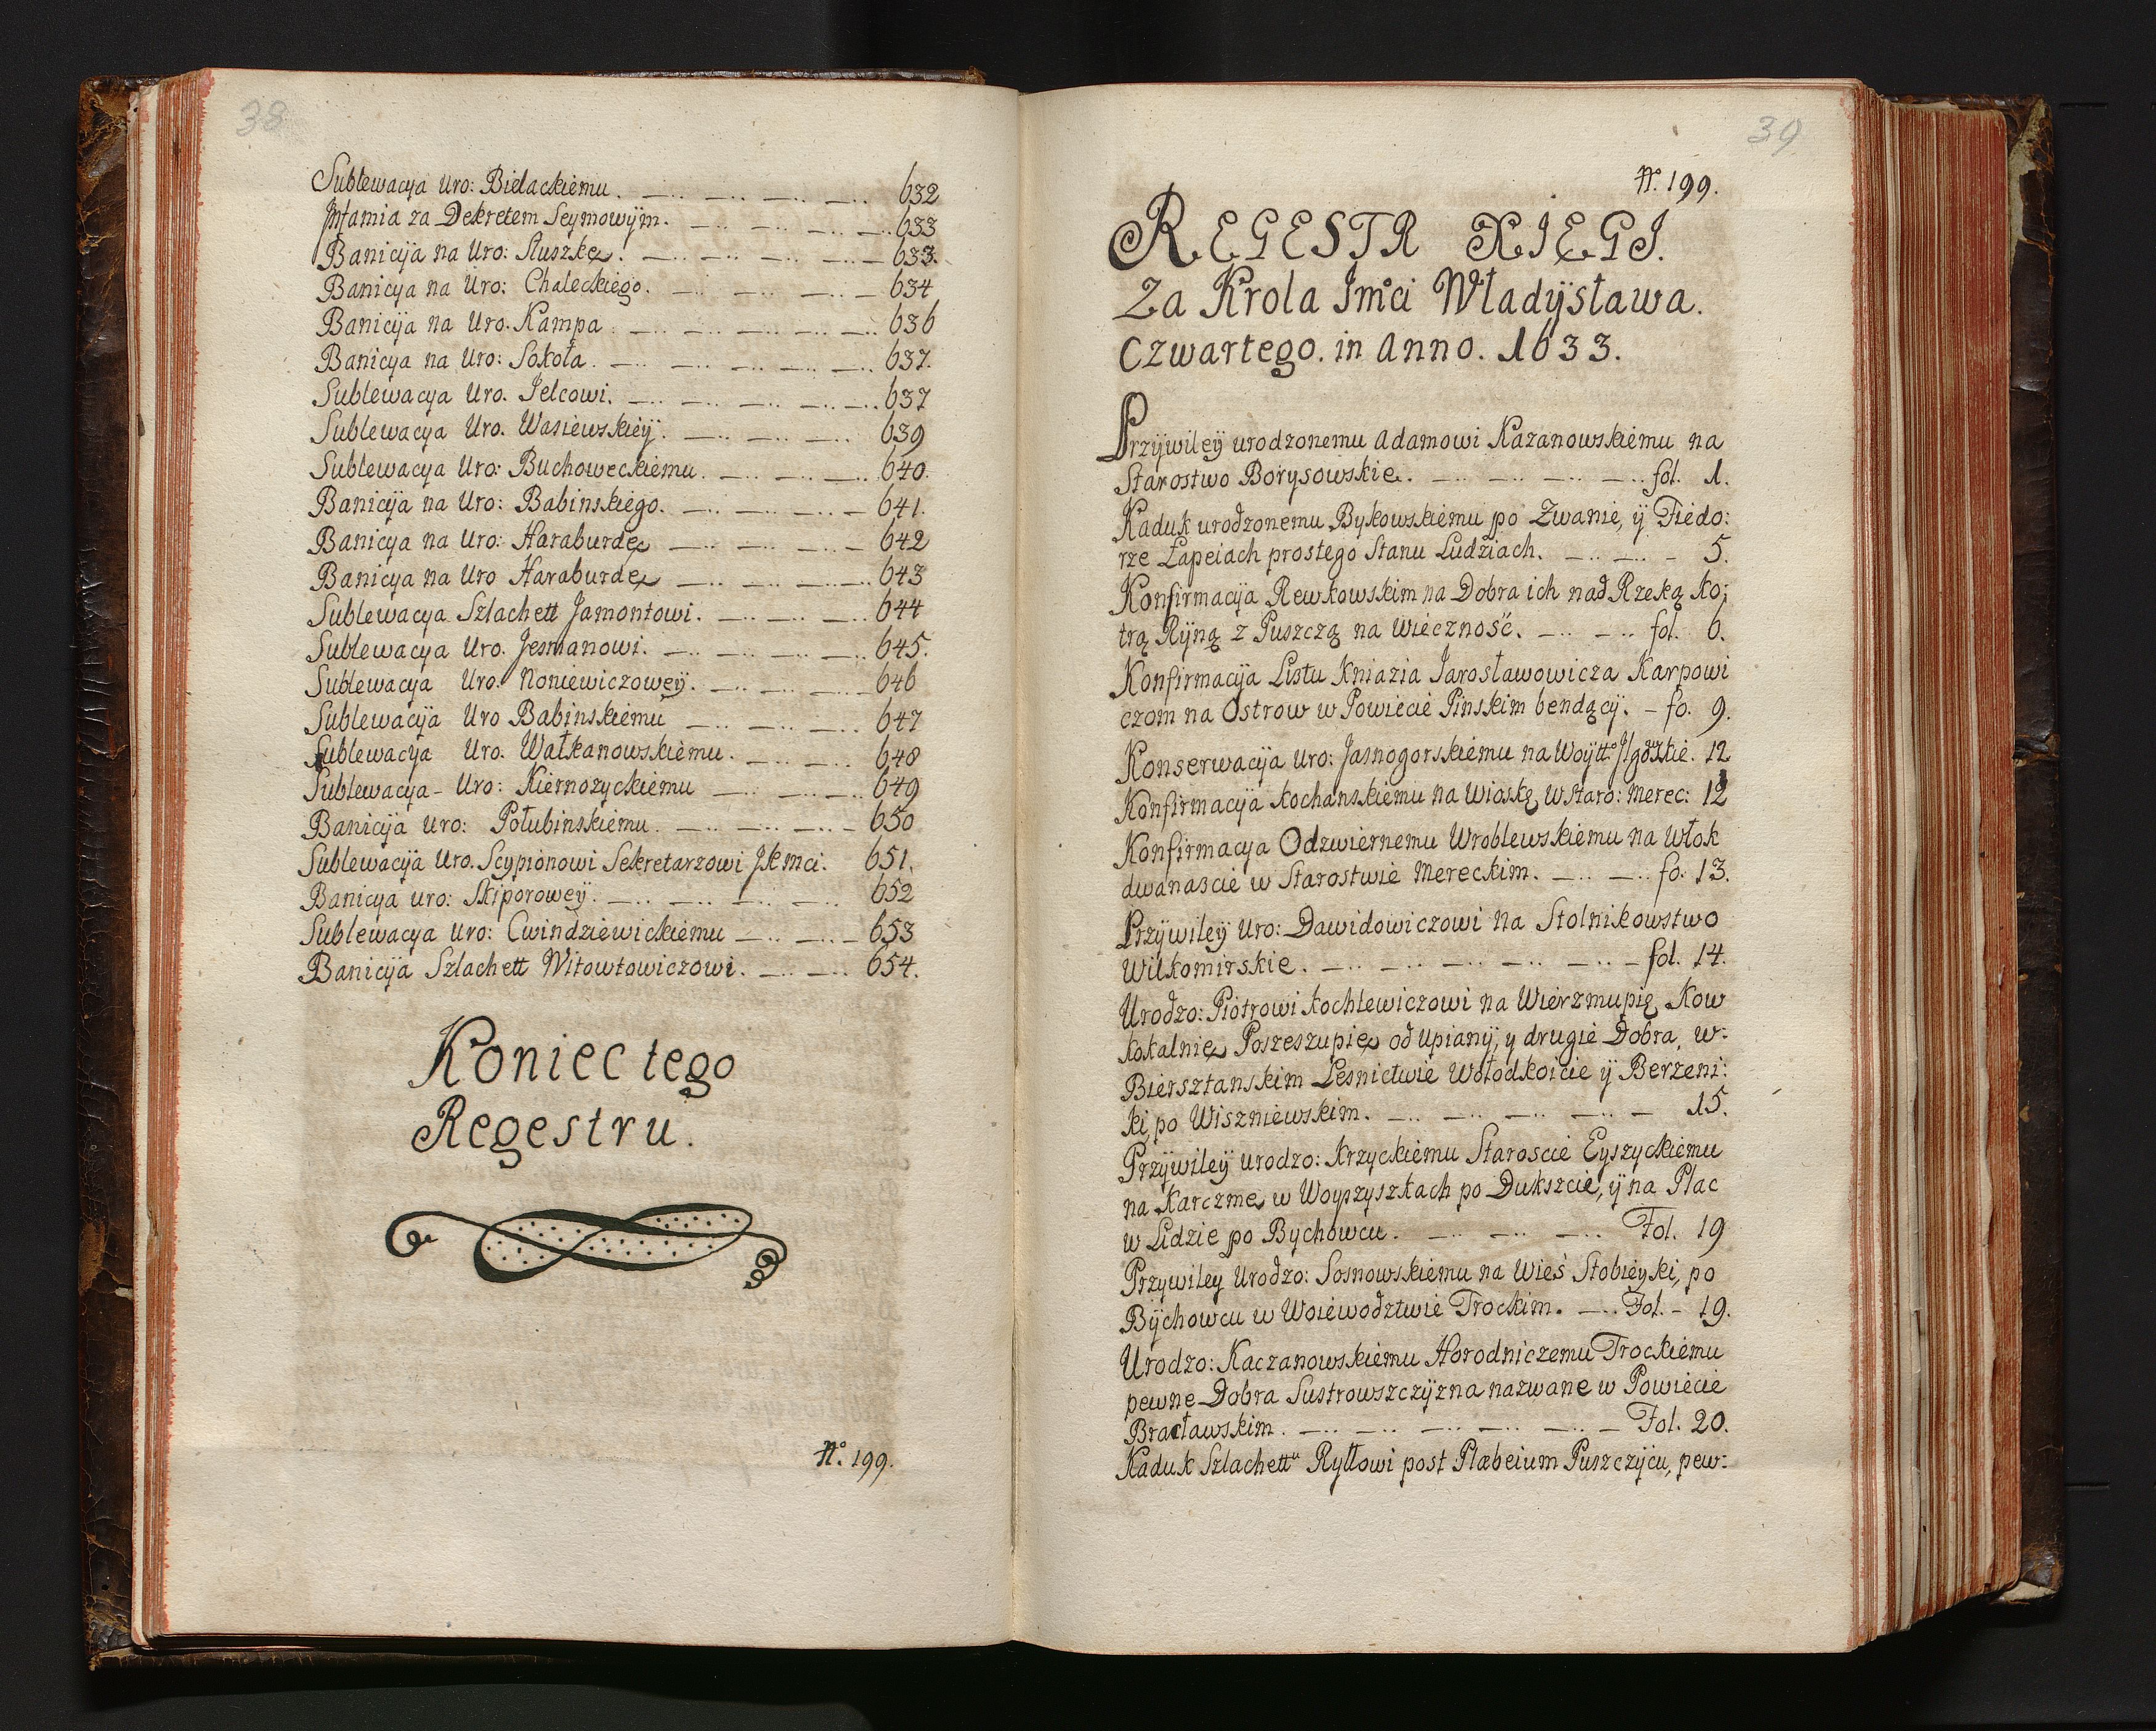 38
Sublewacya Uro: Bielackiemu. 632
Jnfamia za Dekretem Seymowÿm. 633
Banicÿa na Uro: Słuszkę. 633.
Banicya na Uro: Chaleckiego. 634
Banicÿa na Uro. Kampa. 636
Banicya na Uro: Sokoła. 637.
Sublewacya Uro. Jelcowi. 637
Sublewacya Uro. Wasiewskieÿ. 639
Sublewacya Uro: Buchoweckiemu. 640.
Banicÿa na Uro: Babinskiego. 641.
Banicya na Uro: Haraburdę 642
Banicya na Uro Haraburdę 643
Sublewacya Szlachett Jamontowi. 644
Sublewacya Uro. Jesmanowi. 645.
Sublewacya Uro. Noniewiczoweÿ. 646
Sublewacÿa Uro Babinskiemu 647
Sublewacya Uro. Wałkanowskiemu. 648
Sublewacya - Uro: Kiernozyckiemu 649
Banicÿa Uro: Połubinskiemu. 650
Sublewacÿa Uro. Scypionowi Sekretarzowi JKmci. 651.
Banicya Uro: Skiporoweÿ. 652
Sublewacya Uro: Cwindziewickiemu 653
Banicÿa Szlachett Witowtowiczowi. 654.
Koniec tego
Regestru.
No. 199.
39
No. 199.
REGESTR XIĘGI.
Za Krola Jmci Władÿsława.
Czwartego. in Anno. 1633.
Przÿwileÿ urodzonemu Adamowi Kazanowskiemu na
Starostwo Borysowskie. fol. 1.
Kaduk urodzonemu Bykowskiemu po Zwanie, ÿ Fiedo:
rze Łapeiach prostego Stanu Ludziach. 5.
Konfirmacÿa Rewkowskim na Dobra ich nad Rzeką Ko:
trą Rÿną z Puszczą na wieczność. fol. 6.
Konfirmacÿa Listu Kniazia Jarosławowicza Karpowi
czom na Ostrow w Powiecie Pinskim bendącÿ. - fo. 9.
Konserwacÿa Uro: Jasnogorskiemu na Woÿtt: Jłgowskie. 12
Konfirmacÿa Kochanskiemu na Wioskę w Staro: Merec: 12
Konfirmacya Odzwiernemu Wroblewskiemu na włok
dwanascie w Starostwie Mereckim. fo. 13.
Przÿwileÿ Uro: Dawidowiczowi na Stolnikowstwo
Wiłkomirskie. fol. 14.
Urodzo: Piotrowi Kochlewiczowi na Wierzmupię Kow
kokalnię Poszeszupię od Upianÿ, y drugie Dobra, w:
Biersztanskim Lesnictwie Wołodkoicie ÿ Berzeni:
ki, po Wiszniewskim. 15.
Przÿwileÿ urodzo: Krzyckiemu Staroscie Eyszyckiemu
na Karczmę w Woyszyszkach po Dukszcie, ÿ na Plac
w Lidzie po Bychowcu. Fol. 19
Przywiley Urodzo: Sosnowskiemu na Wieś Stobieyki, po
Bÿchowcu w Woiewodztwie Trockim. Fol. - 19.
Urodzo: Kaczanowskiemu Horodniczemu Trockiemu
pewne Dobra Sustrowszczÿzna nazwane w Powiecie
Bracławskim. Fol. 20.
Kaduk Szlachettu Ryłłowi post Plæbeium Puszczÿcu, pew: